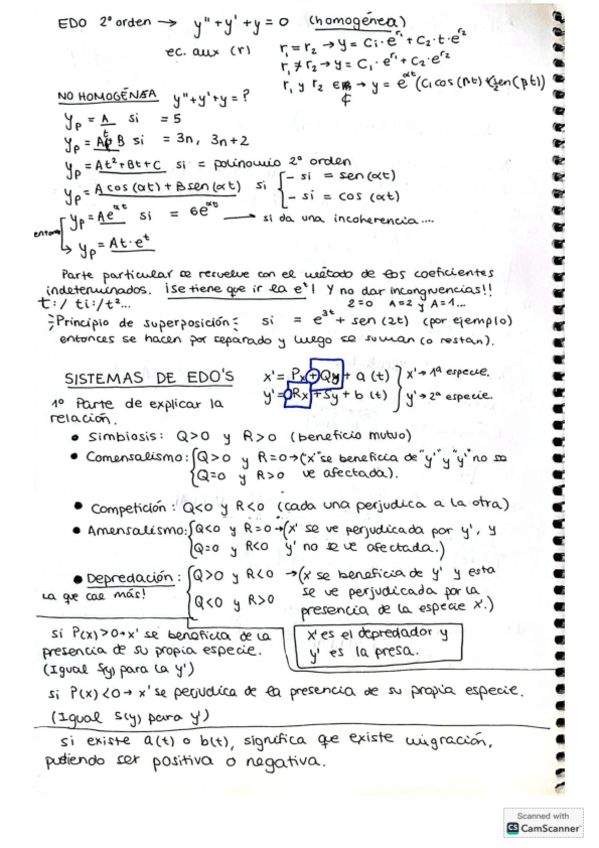 EDO 2º orden → y'' + y' + y = 0 (homogénea)
ec. aux (r)
r₁ = r₂ → y = C₁·e^r₁ + C₂·t·e^r₂
r₁ ≠ r₂ → y = C₁·e^r₁ + C₂·e^r₂
r₁ y r₂ ∈ ₵ → y = e^αt (C₁cos(βt) + C₂sen(βt))
NO HOMOGÉNEA y'' + y' + y = ?
yp = A si = 5
yp = At + B si = 3n, 3n+2
yp = At² + Bt + C si = polinomio 2º orden
yp = A cos(αt) + B sen(αt) si { - si = sen(αt)
- si = cos(αt)
yp = Ae^αt si = 6e^αt → si da una incoherencia....
yp = At·e^t
Parte particular se resuelve con el método de los coeficientes
indeterminados. ¡se tiene que ir la e^t! Y no dar incongruencias!!
t:/ ti:/t²... 2=0 A=2 y A=1...
Principio de superposición: si = e^3t + sen(2t) (por ejemplo)
entonces se hacen por separado y luego se suman (o restan).
SISTEMAS DE EDO'S
x' = Px + Qy + a(t) } x' → 1ª especie.
y' = Rx + Sy + b(t) } y' → 2ª especie.
1º Parte de explicar la
relación.
• Simbiosis: Q>0 y R>0 (beneficio mutuo)
• Comensalismo: { Q>0 y R=0 → ("x" se beneficia de "y'" y "y'" no se
Q=0 y R>0 ve afectada).
• Competición: Q<0 y R<0 (cada una perjudica a la otra)
• Amensalismo: { Q<0 y R=0 → (x' se ve perjudicada por y', y
Q=0 y R<0 y' no se ve afectada.)
• Depredación: { Q>0 y R<0 → (x' se beneficia de y' y esta
La que cae más! se ve perjudicada por la
Q<0 y R>0 presencia de la especie x'.)
si P(x)>0 → x' se beneficia de la
presencia de su propia especie.
(Igual S(y) para la y')
x' es el depredador y
y' es la presa.
si P(x)<0 → x' se perjudica de la presencia de su propia especie.
(Igual S(y) para y')
si existe a(t) o b(t), significa que existe migración,
pudiendo ser positiva o negativa.
Scanned with
CS CamScanner